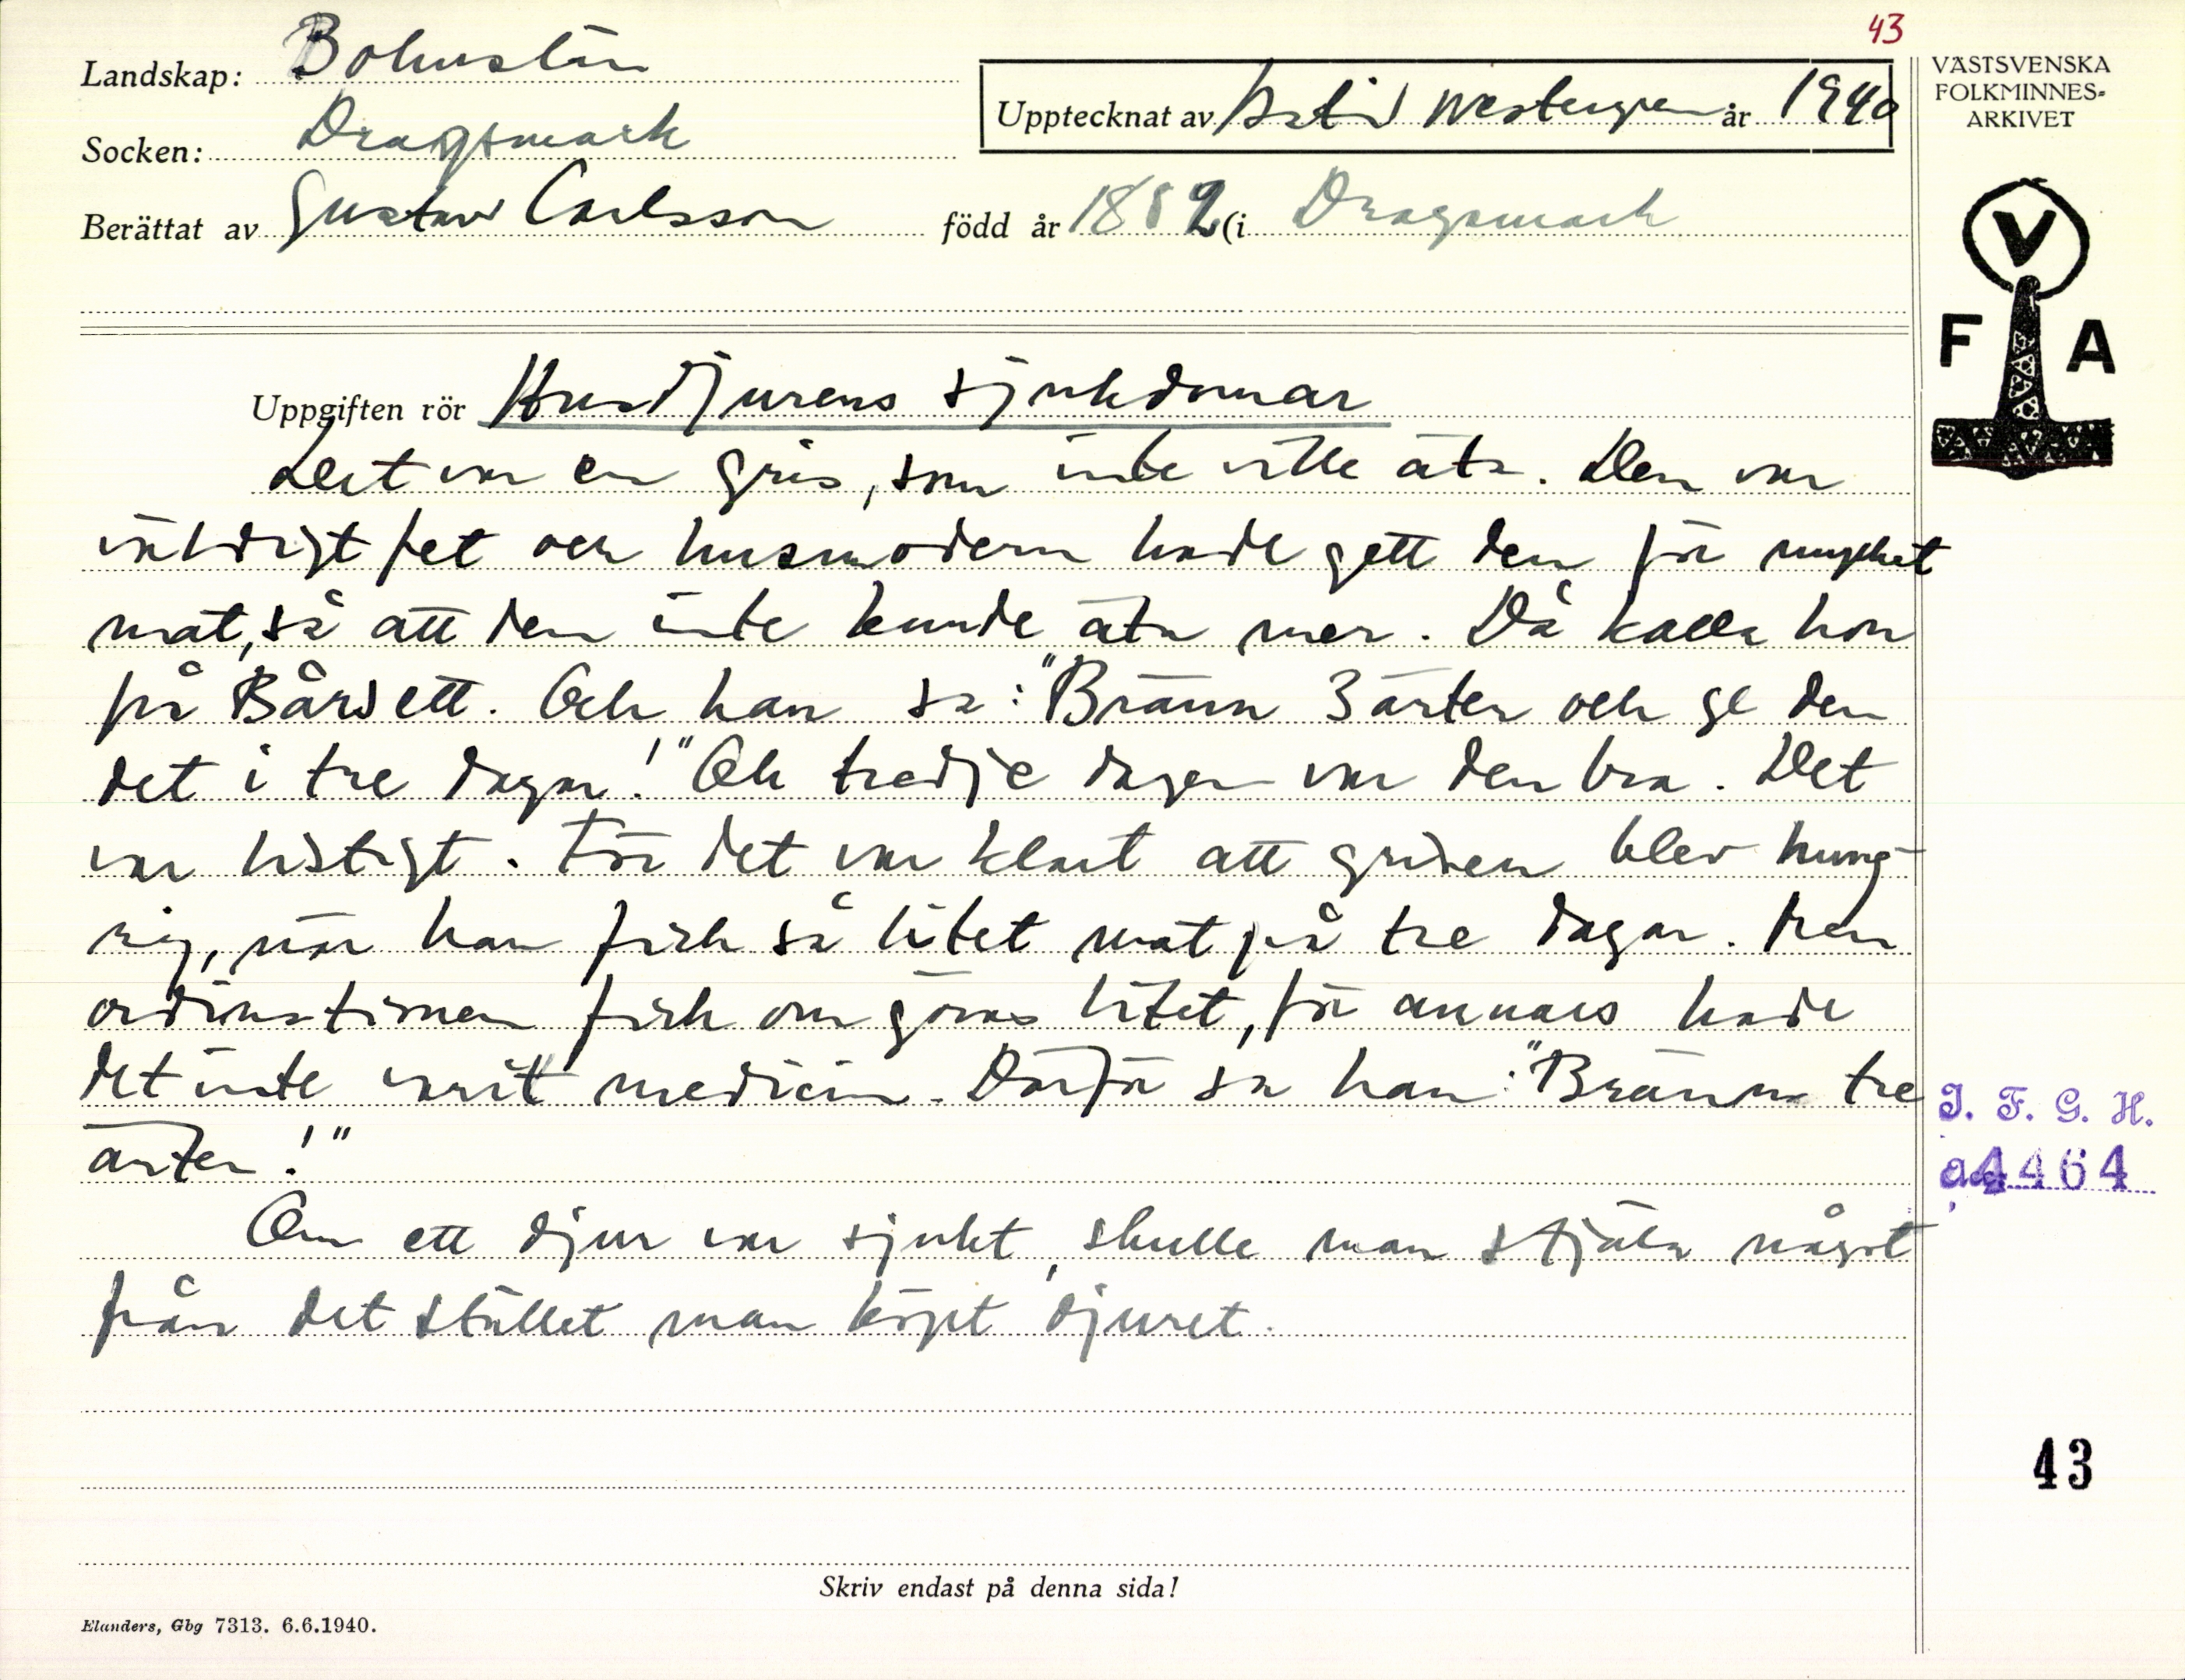 43
Landskap: Bohuslän
VÄSTSVENSKA
FOLKMINNES-
ARKIVET
Upptecknat av Astrid Westergren år 1940
Socken: Dragsmark
Berättat av Gustav Carlsson född år 1882 (i Dragsmark
V
F A
Uppgiften rör Husdjurens sjukdomar
Det var en gris, som inte ville äta. Den var
väldigt fet och husmodern hade gett den för mycket
mat, så att den inte kunde äta mer. Då kalla hon
på Bårdsett. Och han sa: "Bränn 3 ärter och ge den
det i tre dagar!" Och tredje dagen var den bra. Det
var listigt. För det var klart att grisen blev hung-
rig, när han fick så litet mat på tre dagar. Men
ordinationen fick om göras litet, för annars hade
det inte varit medicin. Därför sa han: "Bränn tre
ärter!"
Om ett djur var sjukt, skulle man stjäla något
från det stället man köpt djuret.
I. F. G. H.
acc. 4464
43
Skriv endast på denna sida!
Elanders, Gbg 7313. 6.6.1940.